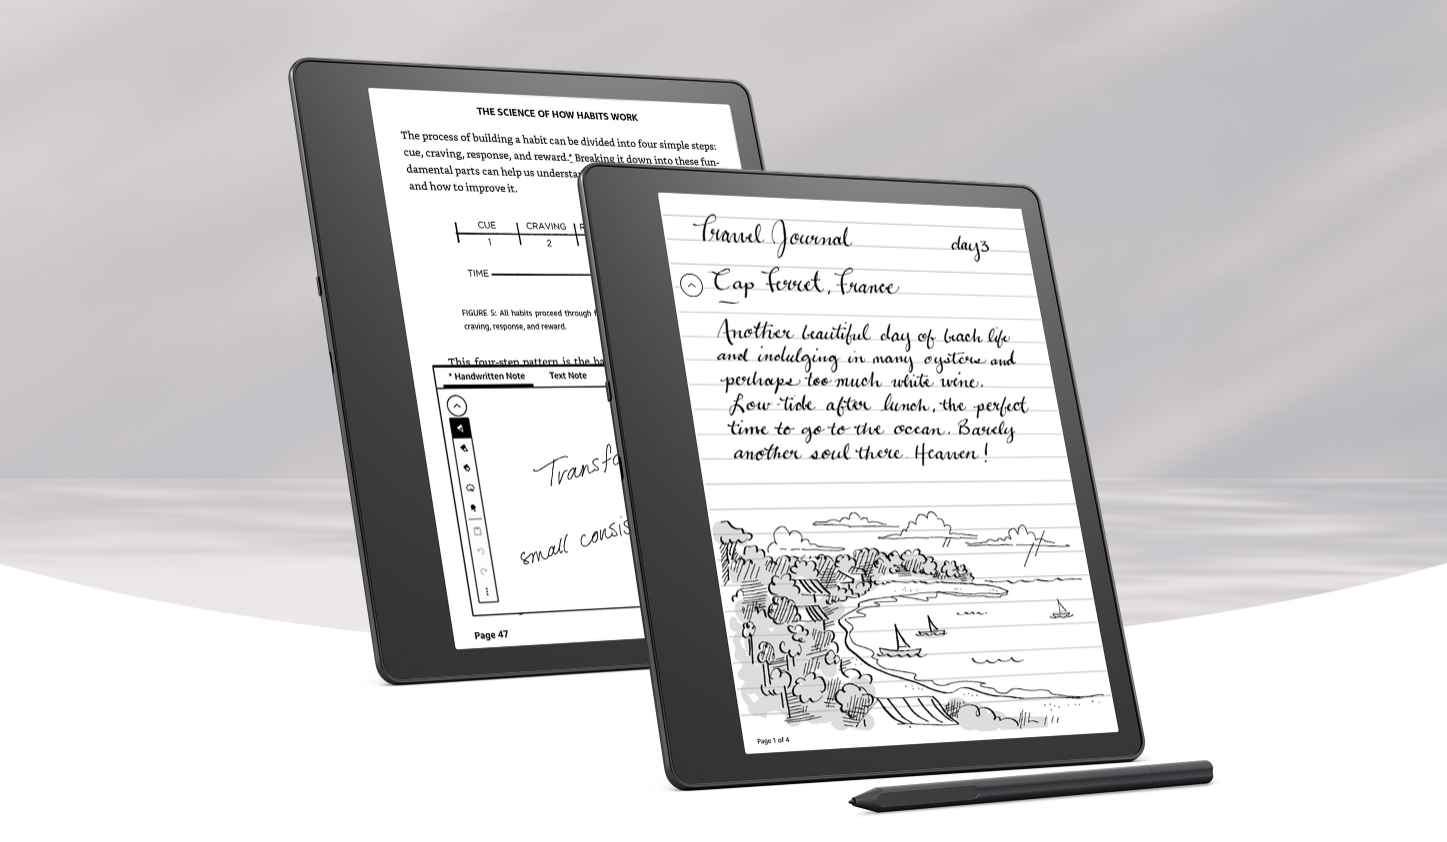 THE SCIENCE OF HOW HABITS WORK
The process of building a habit can be divided into four simple steps:
cue, craving, response, and reward.* Breaking it down into these fun-
damental parts can help us understa
and how to improve it.
CUE CRAVING R
1 2
TIME
FIGURE 5: All habits proceed through f
craving, response, and reward.
This four-step pattern is the ba
* Handwritten Note Text Note
Transfo
small consis
Page 47
Travel Journal day 3
Cap Ferret, France
Another beautiful day of beach life
and indulging in many oysters and
perhaps too much white wine.
Low-tide after lunch, the perfect
time to go to the ocean. Barely
another soul there. Heaven!
Page 1 of 4